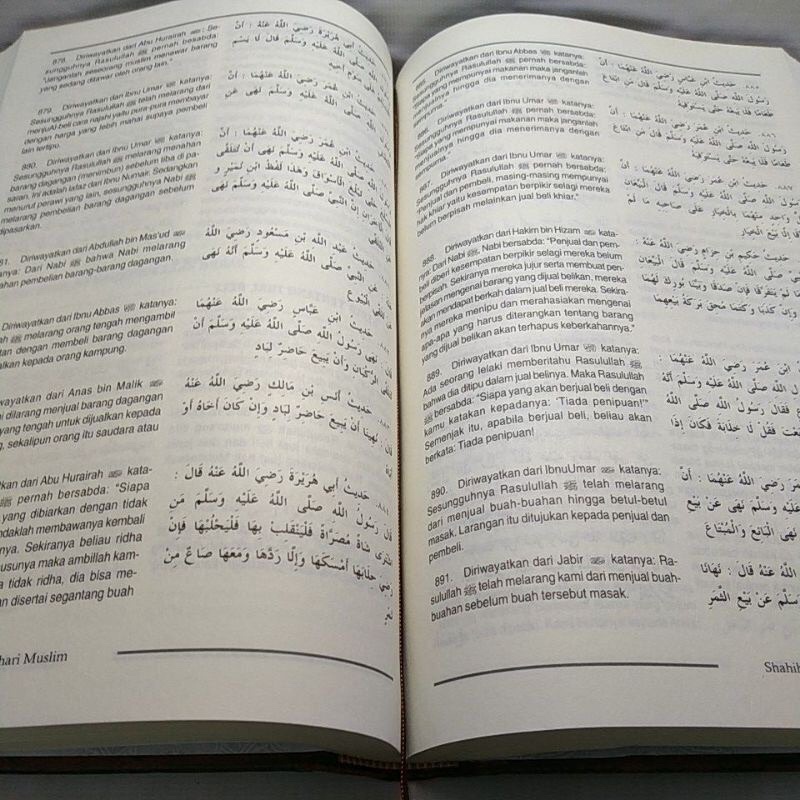 878. Diriwayatkan dari Abu Hurairah ﷺ : Se-
sungguhnya Rasulullah ﷺ pernah bersabda:
"Janganlah seseorang muslim menawar barang
yang sedang ditawar oleh orang lain."
حديث أبي هريرة رضي الله عنه : أن
الله صلى الله عليه وسلم قال لا يسم
على سوم أخيه
879. Diriwayatkan dari Ibnu Umar katanya:
Sesungguhnya Rasulullah ﷺ telah melarang dari
menjual beli cara najsh yaitu pura-pura membayar
dengan harga yang lebih mahal supaya pembeli
lain tertipu.
حديث ابن عمر رضي الله عنهما : أن
الله صلى الله عليه وسلم نهى عن
880. Diriwayatkan dari Ibnu Umar katanya:
Sesungguhnya Rasulullah ﷺ telah melarang menahan
barang dagangan (menimbun) sebelum tiba di pa-
saran. Ini adalah lafaz dari Ibnu Numair. Sedangkan
menurut perawi yang lain, sesungguhnya Nabi ﷺ
melarang pembelian barang dagangan sebelum
dipasarkan.
حديث ابن عمر رضي الله عنهما : أن
الله صلى الله عليه وسلم نهى أن تتلقى
حتى تبلغ الأسواق وهذا لفظ ابن نمير و
الآخران إن النبي صلى الله عليه وسلم نهى
81. Diriwayatkan dari Abdullah bin Mas'ud
anya: Dari Nabi ﷺ bahwa Nabi melarang
ahan pembelian barang-barang dagangan.
حديث عبد الله بن مسعود رضي الله
عن النبي صلى الله عليه وسلم أنه نهى
البيوع
Diriwayatkan dari Ibnu Abbas katanya:
ﷺ melarang orang tengah mengambil
tan dengan membeli barang dagangan
alkan kepada orang kampung.
حديث ابن عباس رضي الله عنهما
قال نهى رسول الله صلى الله عليه وسلم أن
الركبان وأن يبيع حاضر لباد
wayatkan dari Anas bin Malik
mi dilarang menjual barang dagangan
yang tengah untuk dijualkan kepada
g, sekalipun orang itu saudara atau
حديث أنس بن مالك رضي الله عنه
قال : نهينا أن يبيع حاضر لباد وإن كان أخاه أو
atkan dari Abu Hurairah kata-
ﷺ pernah bersabda: "Siapa
yang dibiarkan dengan tidak
ndaklah membawanya kembali
nya. Sekiranya beliau ridha
susunya maka ambillah kam-
a tidak ridha, dia bisa me-
an disertai segantang buah
حديث أبي هريرة رضي الله عنه قال :
قال رسول الله صلى الله عليه وسلم من
اشترى شاة مصراة فلينقلب بها فليحلبها فإن
رضي حلابها أمسكها وإلا ردها ومعها صاع من
تمر
hari Muslim
885. Diriwayatkan dari Ibnu Abbas katanya:
Sesungguhnya Rasulullah ﷺ pernah bersabda:
Siapa yang mempunyai makanan maka janganlah
menjualnya hingga dia menerimanya dengan
٨٨٥. حديث ابن عباس رضي الله عنهما : أن
رسول الله صلى الله عليه وسلم قال من ابتاع
طعاما فلا يبعه حتى يستوفيه
886. Diriwayatkan dari Ibnu Umar katanya:
Sesungguhnya Rasulullah ﷺ pernah bersabda:
Siapa yang mempunyai makanan maka janganlah
menjualnya hingga dia menerimanya dengan
sempurna."
٨٨٦. حديث ابن عمر رضي الله عنهما : أن
رسول الله صلى الله عليه وسلم قال من ابتاع
طعاما فلا يبعه حتى يستوفيه
887. Diriwayatkan dari Ibnu Umar katanya:
Sesungguhnya Rasulullah ﷺ pernah bersabda:
Penjual dan pembeli, masing-masing mempunyai
hak khiar yaitu kesempatan berpikir selagi mereka
belum berpisah melainkan jual beli khiar."
٨٨٧. حديث ابن عمر رضي الله عنهما : أن
رسول الله صلى الله عليه وسلم قال البيعان
كل واحد منهما بالخيار على صاحبه ما لم
يتفرقا إلا بيع الخيار
888. Diriwayatkan dari Hakim bin Hizam kata-
nya: Dari Nabi ﷺ Nabi bersabda: "Penjual dan pem-
beli diberi kesempatan berpikir selagi mereka belum
berpisah. Sekiranya mereka jujur serta membuat pen-
jelasan mengenai barang yang dijual belikan, mereka
akan mendapat berkah dalam jual beli mereka. Sekira-
nya mereka menipu dan merahasiakan mengenai
apa-apa yang harus diterangkan tentang barang
yang dijual belikan akan terhapus keberkahannya."
حديث حكيم بن حزام رضي الله عنه :
النبي صلى الله عليه وسلم قال : البيعان
ما لم يتفرقا فإن صدقا وبينا بورك لهما
وإن كذبا وكتما محق بركة بيعهما
889. Diriwayatkan dari Ibnu Umar katanya:
Ada seorang lelaki memberitahu Rasulullah
bahwa dia ditipu dalam jual belinya. Maka Rasulullah
ﷺ bersabda: "Siapa yang akan berjual beli dengan
kamu katakan kepadanya: 'Tiada penipuan!'"
Semenjak itu, apabila berjual beli, beliau akan
berkata: Tiada penipuan!
ابن عمر رضي الله عنهما :
الله صلى الله عليه وسلم أنه
فقال رسول الله صلى الله
فقل لا خلابة فكان إذا
890. Diriwayatkan dari IbnuUmar katanya:
Sesungguhnya Rasulullah ﷺ telah melarang
dari menjual buah-buahan hingga betul-betul
masak. Larangan itu ditujukan kepada penjual dan
pembeli.
عمر رضي الله عنهما : أن
عليه وسلم نهى عن بيع
نهى البائع والمبتاع
891. Diriwayatkan dari Jabir katanya: Ra-
sulullah ﷺ telah melarang kami dari menjual buah-
buahan sebelum buah tersebut masak.
الله عنه قال : نهانا
وسلم عن بيع الثمر
Shahih